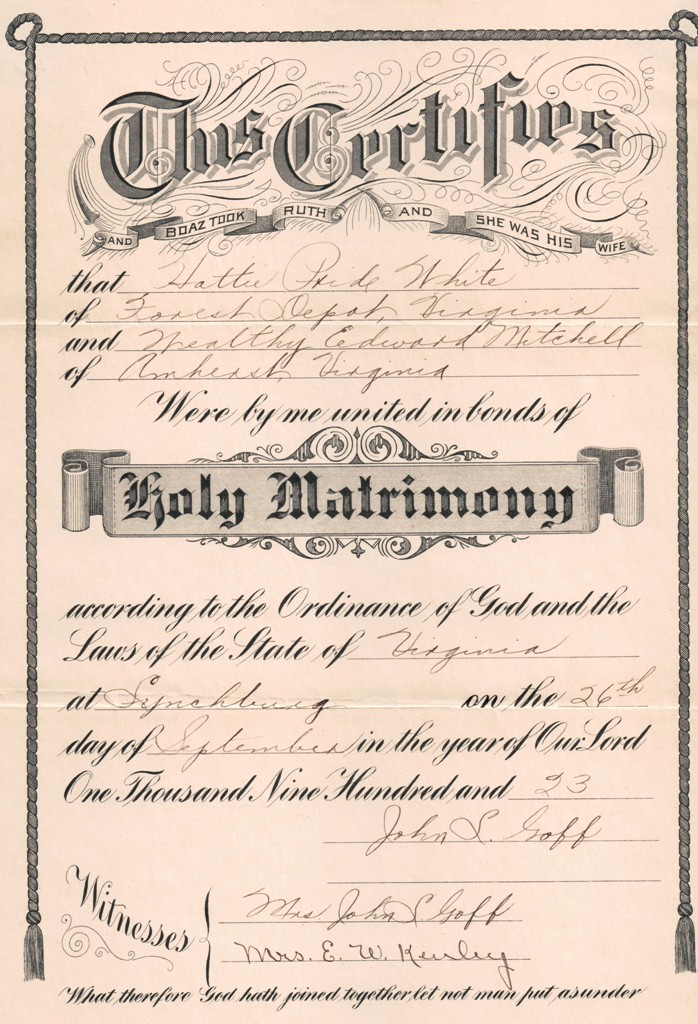 This Certifies
AND BOAZ TOOK RUTH AND SHE WAS HIS WIFE
that Hattie Pride White
of Forest Depot, Virginia
and Wealthy Edward Mitchell
of Amherst, Virginia
Were by me united in bonds of
Holy Matrimony
according to the Ordinance of God and the
Laws of the State of Virginia
at Lynchburg on the 26th
day of September in the year of Our Lord
One Thousand Nine Hundred and 23
John L. Goff
Witnesses
Mrs John L. Goff
Mrs. E. W.
What therefore God hath joined together let not man put asunder